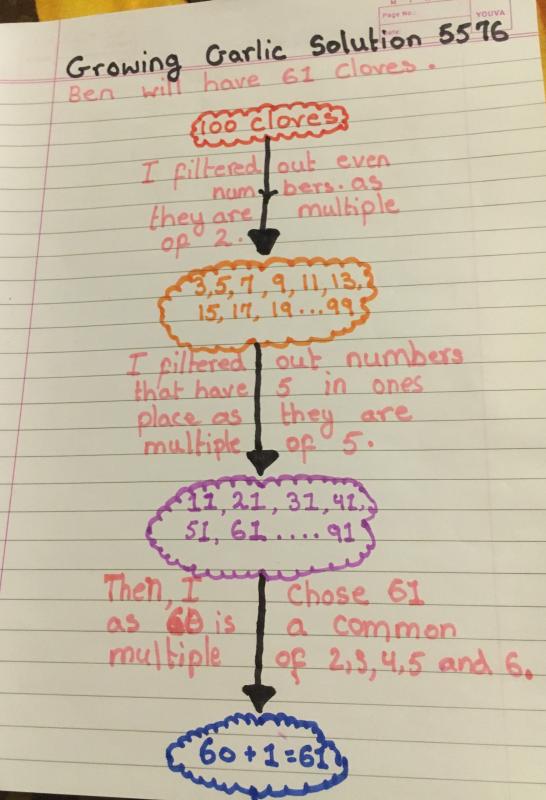 Page No.:
YOUVA
Growing Garlic Solution 5576
Ben will have 61 cloves.
100 cloves
I filtered out even
numbers. as
they are multiple
of 2.
3,5,7,9,11,13,
15,17,19...99
I filtered out numbers
that have 5 in ones
place as they are
multiple of 5.
11, 21, 31, 41,
51, 61.....91
Then, I chose 61
as 60 is a common
multiple of 2,3,4,5 and 6.
60+1=61